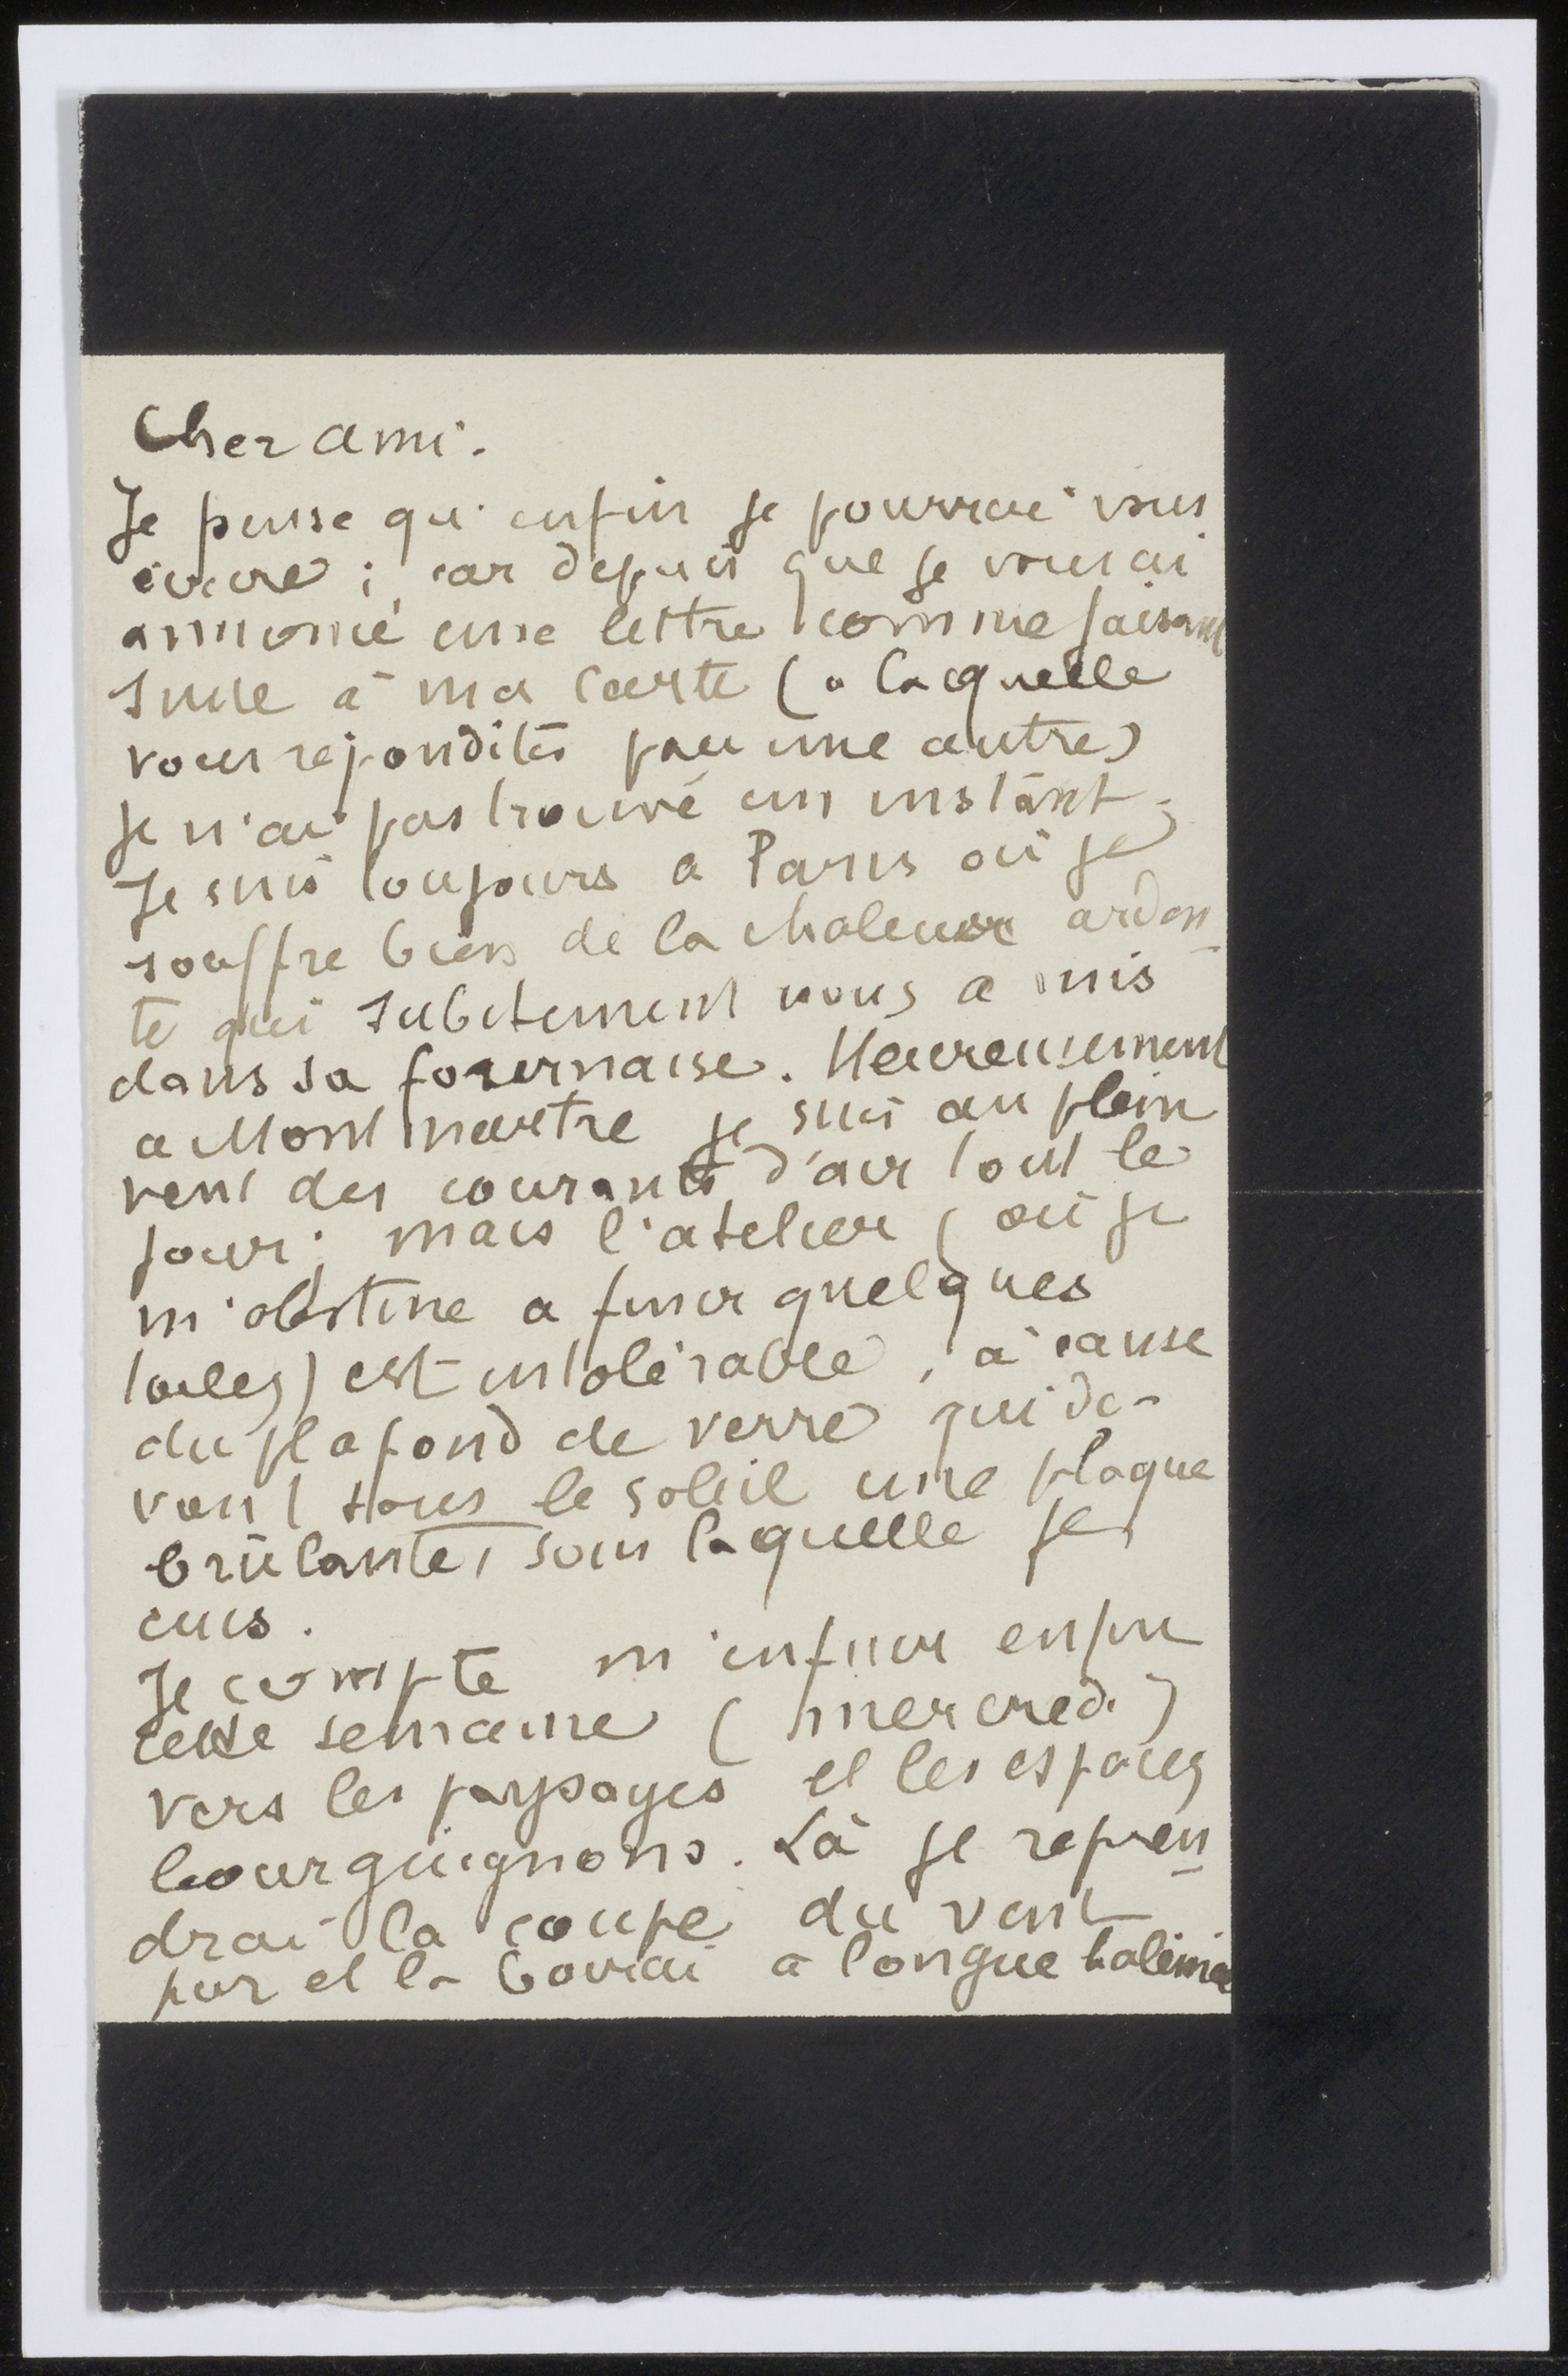 Cher ami.
Je pense qu'enfin je pourrai vous
écrire ; car depuis que je vous ai
annoncé une lettre comme faisant
suite à ma carte (a laquelle
vous répondites par une autre)
je n'ai pas trouvé un instant.
Je suis toujours a Paris où je
souffre bien de la chaleur arden-
te qui subitement nous a mis
dans sa fournaise. Heureusement
a Montmartre je suis au plein
vent des courants d'air tout le
jour ; mais l'atelier ( où je
m'obstine a finir quelques
toiles) est intolérable, à cause
du plafond de verre qui de-
vient sous le soleil une plaque
brûlante, sous laquelle je
cuis.
Je compte m'enfuir enfin
cette semaine ( mercredi )
vers les paysages et les espaces
bourguignons. Là je repren-
drai la coupe du vent
pur et la boirai a longue haleine